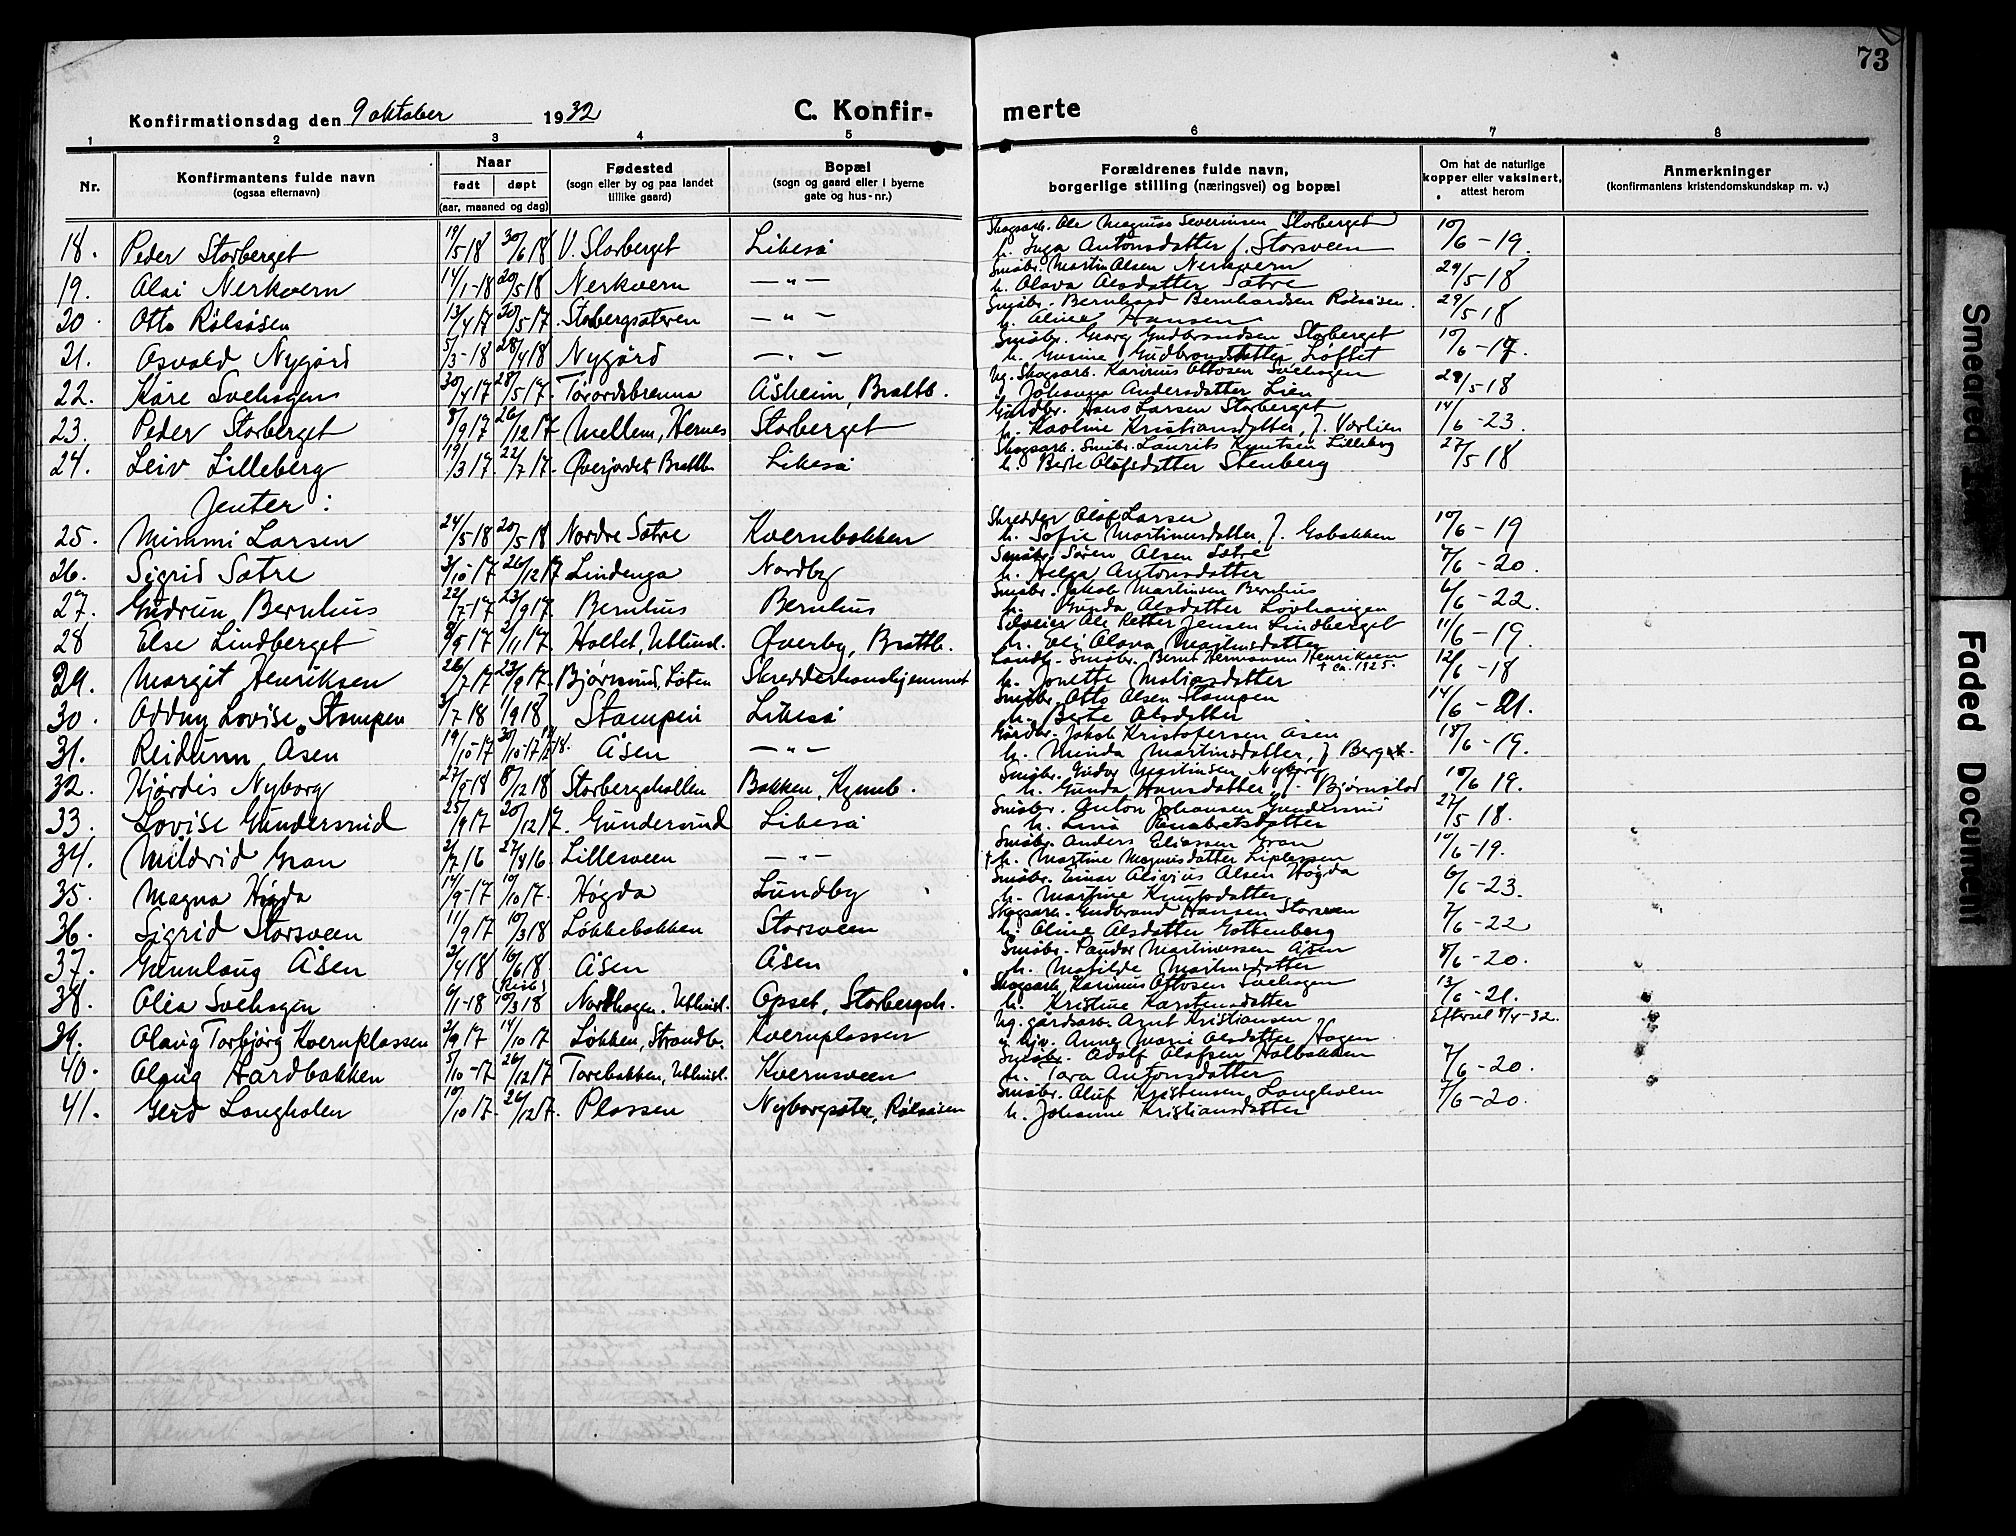 73
Konfirmationsdag den 9 oktober 1932
C. Konfirmerte
1 2 3 4 5 6 7 8
Nr.
Konfirmantens fulde navn
(ogsaa efternavn)
Naar
født døpt
(aar, maaned og dag)
Fødested
(sogn eller by og paa landet
tillike gaard)
Bopæl
(sogn og gaard eller i byerne
gate og hus-nr.)
Forældrenes fulde navn,
borgerlige stilling (næringsvei) og bopæl
Om hat de naturlige
kopper eller vaksinert,
attest herom
Anmerkninger
(konfirmantens kristendomskundskap m. v.)
18. Peder Storberget 19/5 18 30/6 18 V. Storberget Likeså Skogsarb. Ole Magnus Severinsen Storberget
h. Inga Antonsdatter f. Storsveen 10/6-19.
19. Alai Nerkvern 14/1-18 20/5 18 Nerkvern —"— Småbr. Martin Olsen Nerkvern
h. Olava Olsdatter Sætre 29/5 18
20. Otto Rölsåsen 13/4 17 20/5 17. Storbergsæteren —"— Småbr. Bernhard Bernhardsen Rölsåsen.
h. Aline Hansen 29/5 18
21. Osvald Nygård 5/3-18 28/4 18 Nygård —"— Småbr. Georg Gudbrandsen Storberget
h. Gusine Gudbrandsdatter Loftet 10/6-17.
22. Kåre Svehagen 30/4 17 28/5 17. Torordsbrenna Åsheim, Brattb. Ug. Skogsarb. Karinius Ottosen Svehagen
Johanna Andersdatter Lien 29/5 18
23. Peder Storberget 8/9 17 26/12 17 Mellem, Hernes Storberget Gårdbr. Hans Larsen Storberget
h. Kaoline Kristiansdatter, f. Vårlien 14/6-23.
24. Leiv Lilleberg 19/3 17. 22/7 17. Øverjordet Brattb. Likeså Skogsarb. Småbr. Laurits Knutsen Lilleberg
h. Berte Olufsdatter Stenberg 27/5 18
Jenter:
25. Mimmi Larsen 24/5 18 20/5 18 Nordre Sætre Kvernbakken Skredder Olaf Larsen
h. Sofie Martinusdatter, f. Gobakken 10/6-19
26. Sigrid Sætre 3/10 17 26/12 17 Lindenga Nordby Småbr. Søren Olsen Sætre
h. Helga Antonsdatter 7/6-20.
27. Gudrun Bernhus 22/7-17 23/9 17. Bernhus Bernhus Småbr. Jakob Martinsen Bernhus
h. Gunda Olsdatter Lövhaugen 6/6-22.
28 Else Lindberget 8/5 17 2/11 17. Holtet, Utlind. Øverby, Brattb. Selveier Ole Petter Jensen Lindberget
h. Eli Olava Martinsdatter 11/6-19.
29. Margit Henriksen 26/7 17 23/9 17. Bjørnsrud, Løten Skredderhanshjemmet Landh. Småbr. Bernt Hermansen Henriksen
h. Jonette Matiasdatter † ca. 1925. 12/6-18
30. Oddny Lovise Stampen 3/7 18 1/9 18 Stampen Likeså Småbr. Otto Olsen Stampen
h. Berte Olsdatter 14/6-21.
31. Reidunn Åsen 19/10-17 30/10-17 Åsen —"— Gårdbr. Jakob Kristofersen Åsen
h. Minda Martinsdatter, f. Berget. 18/6-19.
32. Hjördis Nyborg 27/9-18 8/12 18 Storbergshallen Bakken, Kynnb. Småbr. Gudor Martinsen Nyborg
h. Gunda Hansdatter, f. Bjørnstad 10/6 19.
33. Lovise Gundersrud 25/9 17 20/12 17. Gundersrud Likeså Småbr. Anton Johansen Gundersrud
h. Lina Panabretsdatter 27/5 18.
34. Mildrid Gran 2/7 16 27/8 16 Lillesveen —"— Småbr. Anders Eliassen Gran
† h. Martine Magnusdatter Liplassen 10/6-19.
35. Magna Högda 14/9-17 10/10 17. Högda Lundby Småbr. Einar Alivius Olsen Högda
h. Martine Knutsdatter 6/6-23.
36. Sigrid Storsveen 11/9 17 10/3 18 Løkkebakken Storsveen Skogsarb. Gudbrand Hansen Storsveen
h. Aline Olsdatter Gottenberg 7/6-22
37. Gunnlaug Åsen 3/4 18 16/6 18 Åsen Åsen Småbr. Paudor Martinussen Åsen
h. Matilde Martinsdatter 8/6-20.
38. Olea Svehagen 6/1-18 10/3 18 Nordhagen, Utlind. Opset, Storbergsh. Skogsarb. Karinius Ottosen Svehagen
h. Kristine Karstensdatter 13/6-21.
39. Olaug Torbjörg Kvernplassen 2/9 17 14/10 17 Løkken, Strandb. Kvernplassen Ug. gårdsarb. Arnt Kristiansen
Anne Marie Olsdatter Hagen Eftersel 8/5-32.
40. Olaug Hardbakken 5/10-17 26/12 17 Torebakken, Utlind. Kvernsveen Småbr. Adolf Olafsen Halbakken
h. Tora Antonsdatter 7/6-20.
41. Gerd Langholen 10/10 17. 26/12 17. Plassen Nyborgsæter, Rölsåsen Småbr. Oluf Kristensen Langholen
h. Johanne Kristiansdatter 7/6-20.
Faded Document